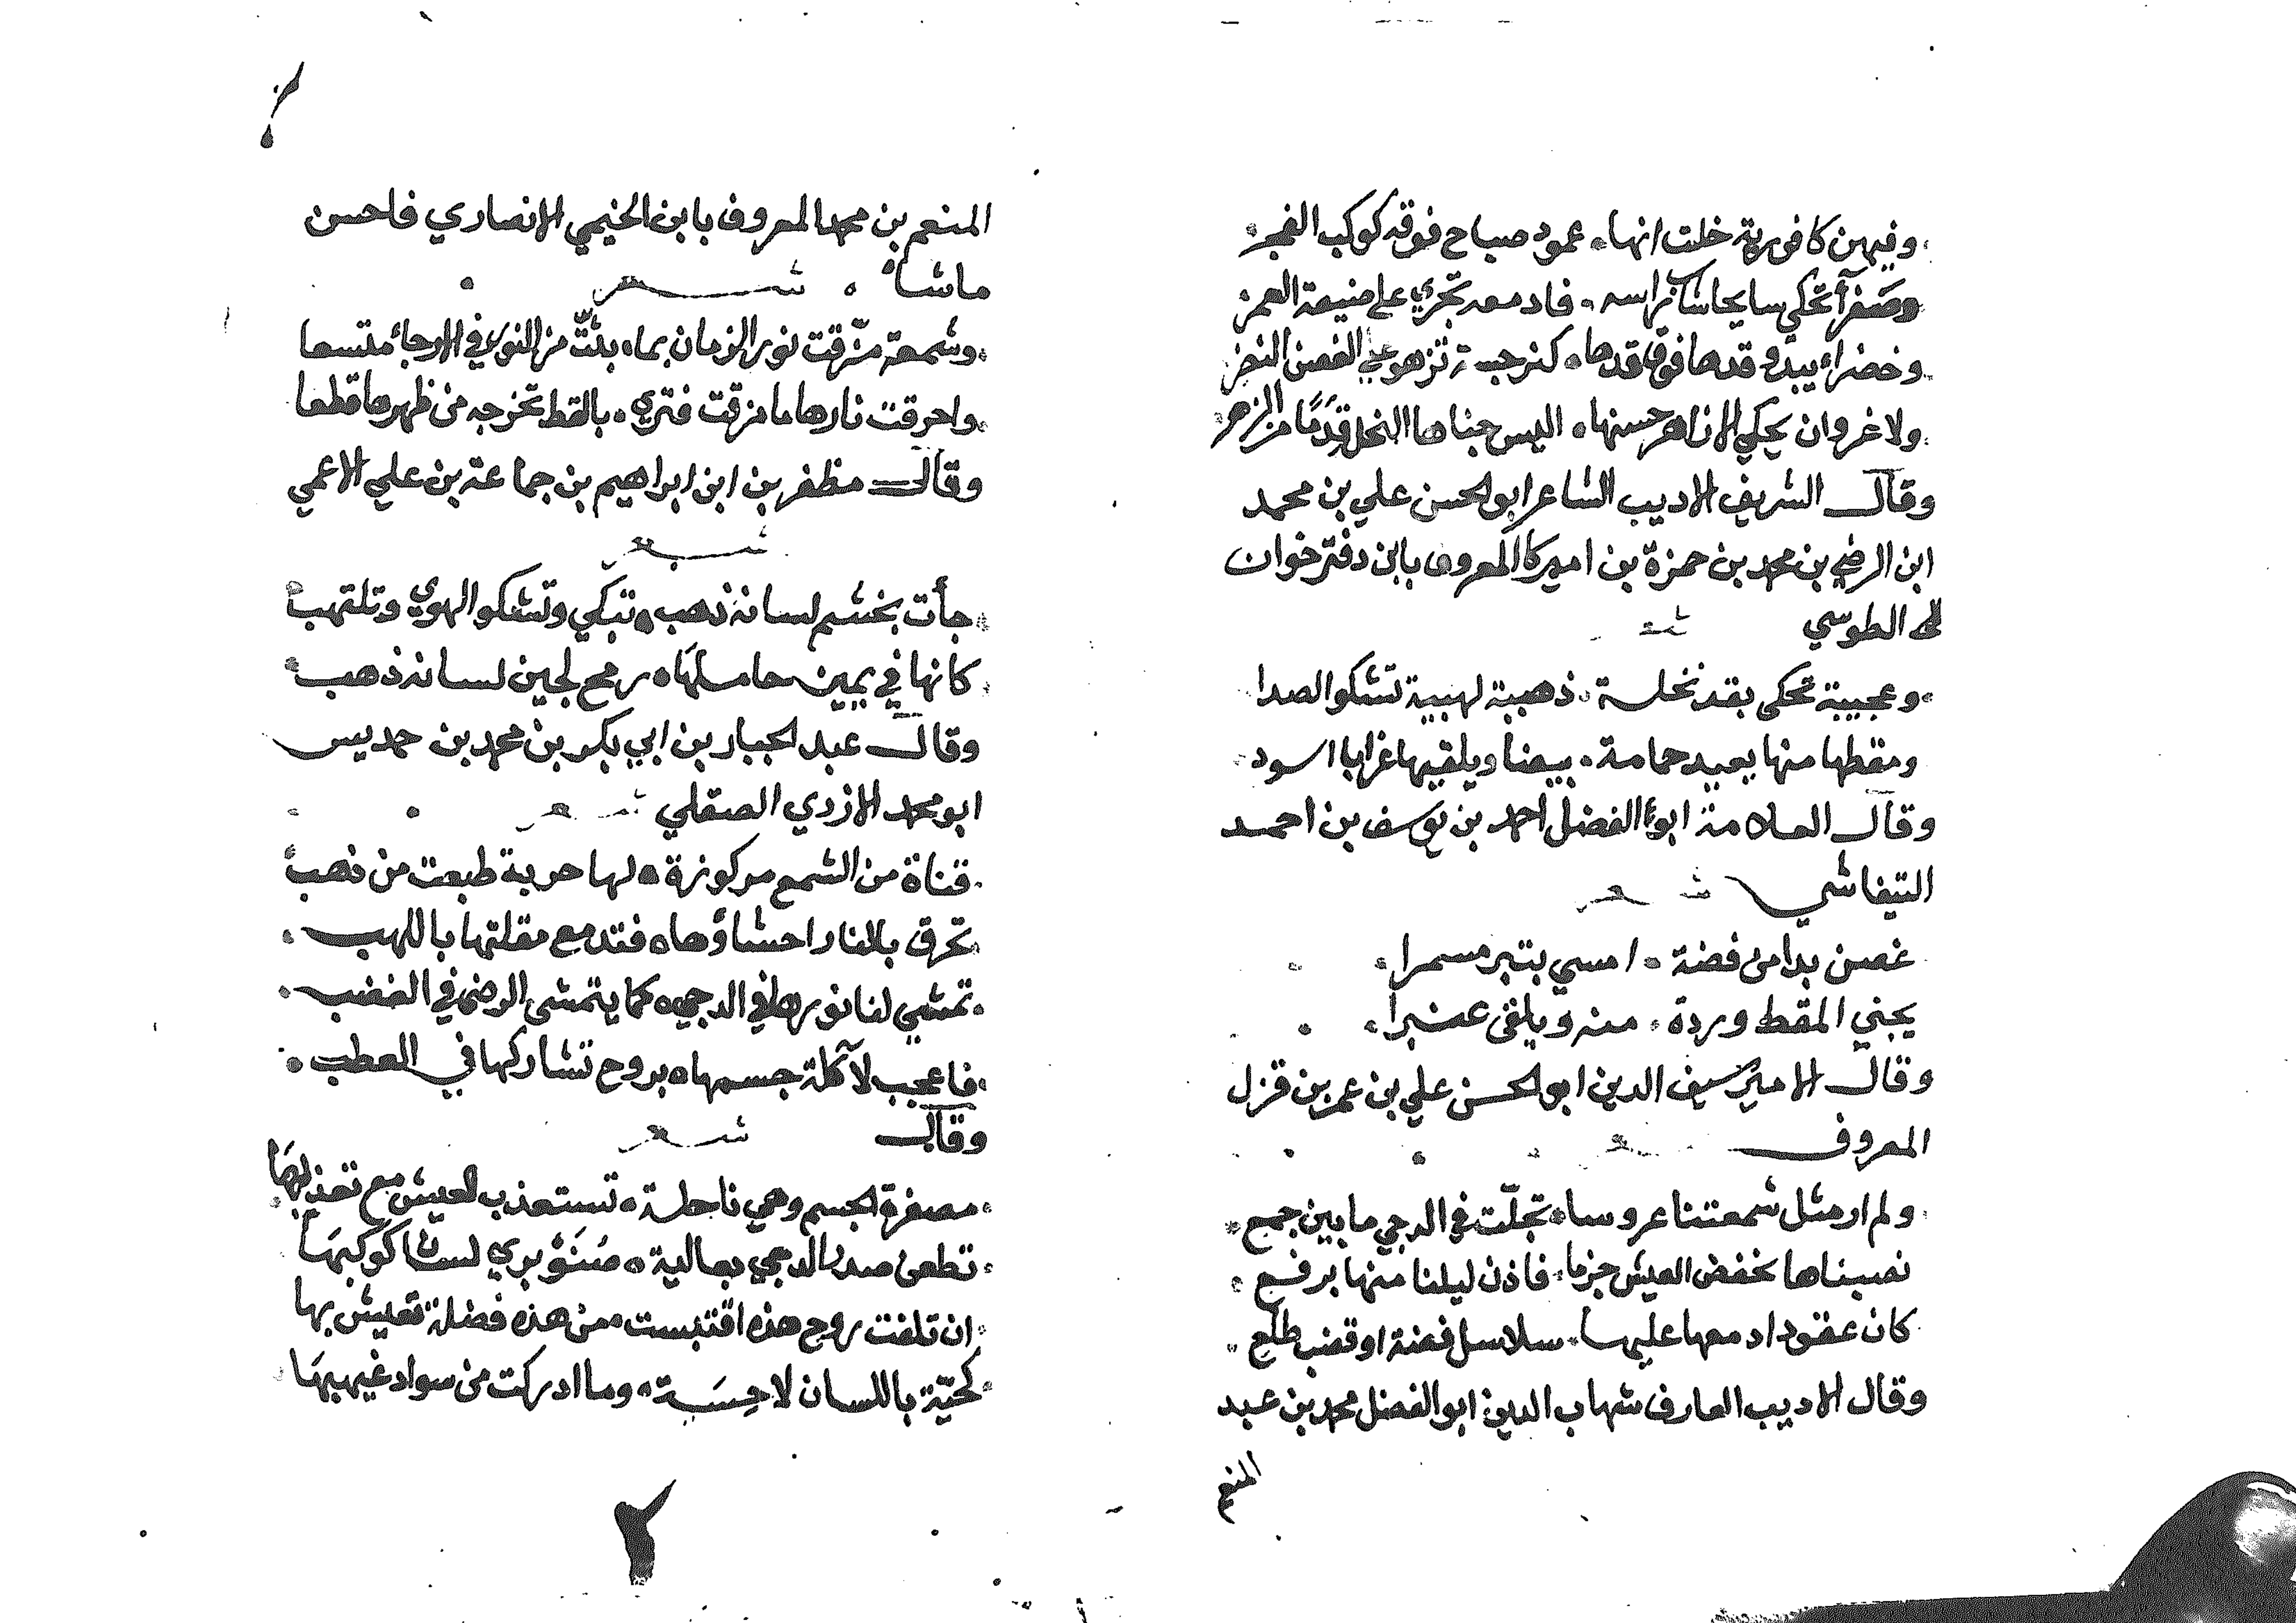 وفيهن كافورية خلت انها • عمود صباح فوقه كوكب الفجر
وصفرآ تحكي سايحا شاب راسه • فادمعه تجري على ضيعة العمر
وخضراء يبدو قدها فوق قدها • كنرجسة تزهو على الغصن النضر
ولا غروان يحكي الازاهر حسنها • اليس جناها النحل قدما من الزهر
وقال الشريف الاديب الشاعر ابو الحسن علي بن محمد
ابن الرضي بن محمد بن حمزة بن اميركا المعروف بابن دفترخوان
الطوسي شعر
وعجيبة تحكي بقد نخلة • ذهبية لهبية تشكوا الصدا
ومقطها منها يعيد حمامة • بيضا ويلقيها غرابا اسود
وقال العلامة ابو الفضل احمد بن يوسف بن احمد
التيفاشي شعر
غصن بدا من فضة • امسي بتبر مسمرا
يجني المقط وردة • منه ويلقى عنبرا
وقال الامير سيف الدين ابو الحسن علي بن عمر بن قزل
المعروف شعر
ولم ار مثل شمعتنا عروسا • تجلّت في الدجي ما بين جمع
نصبناها بخفض العيش جزما • فاذن ليلنا منها برفع
كان عقود ادمعها عليها • سلاسل فضة او قضب طلع
وقال الاديب العارف شهاب الدين ابو الفضل محمد بن عبد
المنعم
المنعم بن محمد المعروف بابن الخيمي الانصاري فاحسن
ماشاء • شعر
وشمعة مزّقت نور الزمان بما • بثّت من النور في الارجاء متسعا
واحرقت نارها ما مزقت فتري • بالقط تخرجه من ظهرها قطعا
وقال مظفر بن ابن ابراهيم بن جماعة بن علي الاعمي
شعر
جأت بخشم لسانه ذهب • تبكي وتشكو الهوي وتلتهب
كانها في يمين حاملها • رمح لجين لسانه ذهب
وقال عبد الجبار بن ابي بكر بن محمد بن حمديس
ابو محمد الازدي الصقلي شعر
قناة من الشمع مركوزة • لها حربة طبعت من ذهب
تحرق بالنار احشاؤها • فتدمع مقلتها باللهب
تمشي لنا نورها في الدجي • كما يتمشى الرضى في الغضب
فاعجب لآكلة جسمها • بروح تشاركها في العطب
وقال شعر
مصفرة الجسم وهي ناحلة • تستعذب العيش مع تعذيبها
تطعن صدر الدجي بعالية • صنوبري لسان كوكبها
ان تلفت روح هذه اقتبست • من هذه فضلة تعيش بها
كحيّة باللسان لاحسة • وما ادركت من سواد غيهبها
٢